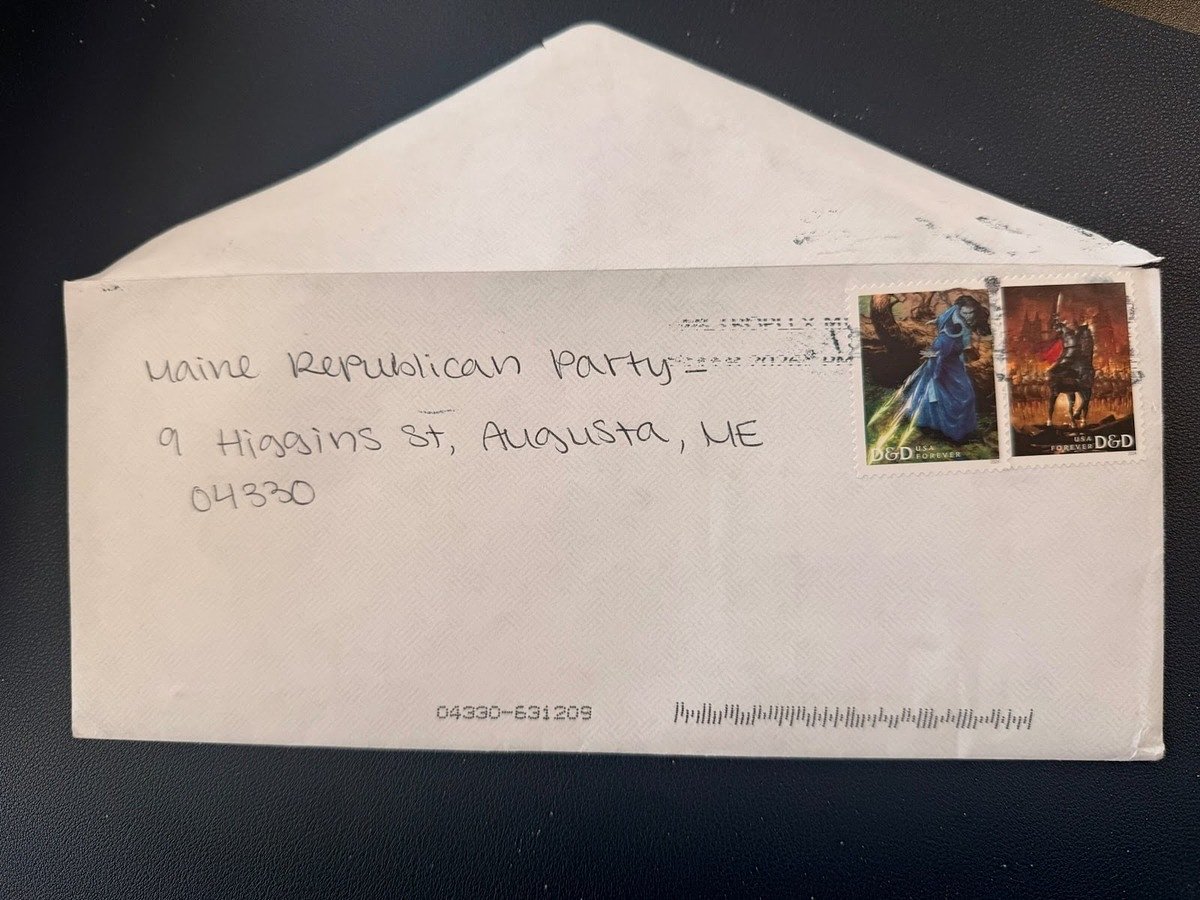 Maine Republican Party
9 Higgins St, Augusta, ME
04330
D&D USA FOREVER
USA FOREVER D&D
04330-631209